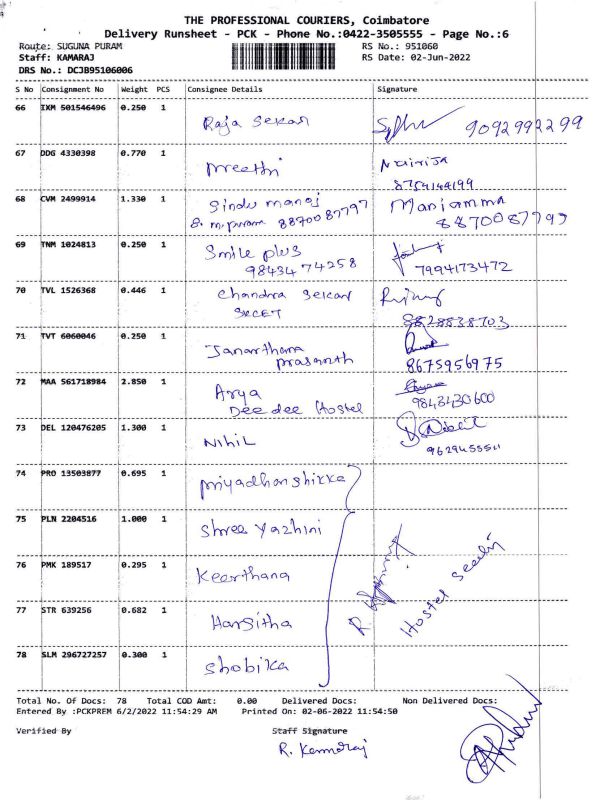 THE PROFESSIONAL COURIERS, Coimbatore
Delivery Runsheet - PCK - Phone No.:0422-3505555 - Page No.:6
Route: SUGUNA PURAM
RS No.: 951060
Staff: KAMARAJ
RS Date: 02-Jun-2022
DRS No.: DCJB95106006
S No Consignment No Weight PCS Consignee Details Signature
66 IXM 501546496 0.250 1 Raja Sekar 9092992299
67 DDG 4330398 0.770 1 Preethi
8754144199
68 CVM 2499914 1.330 1 Sindu manoj Mariamma
8870087797 8870087797
69 TNM 1024813 0.250 1 Smile plus
9843474258 7994173472
70 TVL 1526368 0.446 1 Chandra Sekar
SKCET 8828838703
71 TVT 6060046 0.250 1 Janarthana
Prasanth 8675956975
72 MAA 561718984 2.850 1 Arya
Dee dee Hostel 9843430600
73 DEL 120476205 1.300 1 Nihil
9629455511
74 PRO 13503877 0.695 1 Priyadharshikka
75 PLN 2204516 1.000 1 Shree Yazhini
76 PMK 189517 0.295 1 Keerthana
77 STR 639256 0.682 1 Harsitha
Hostel
78 SLM 296727257 0.300 1 Shobika
Total No. Of Docs: 78 Total COD Amt: 0.00 Delivered Docs: Non Delivered Docs:
Entered By :PCKPREM 6/2/2022 11:54:29 AM Printed On: 02-06-2022 11:54:50
Verified By Staff Signature
R. Kamaraj